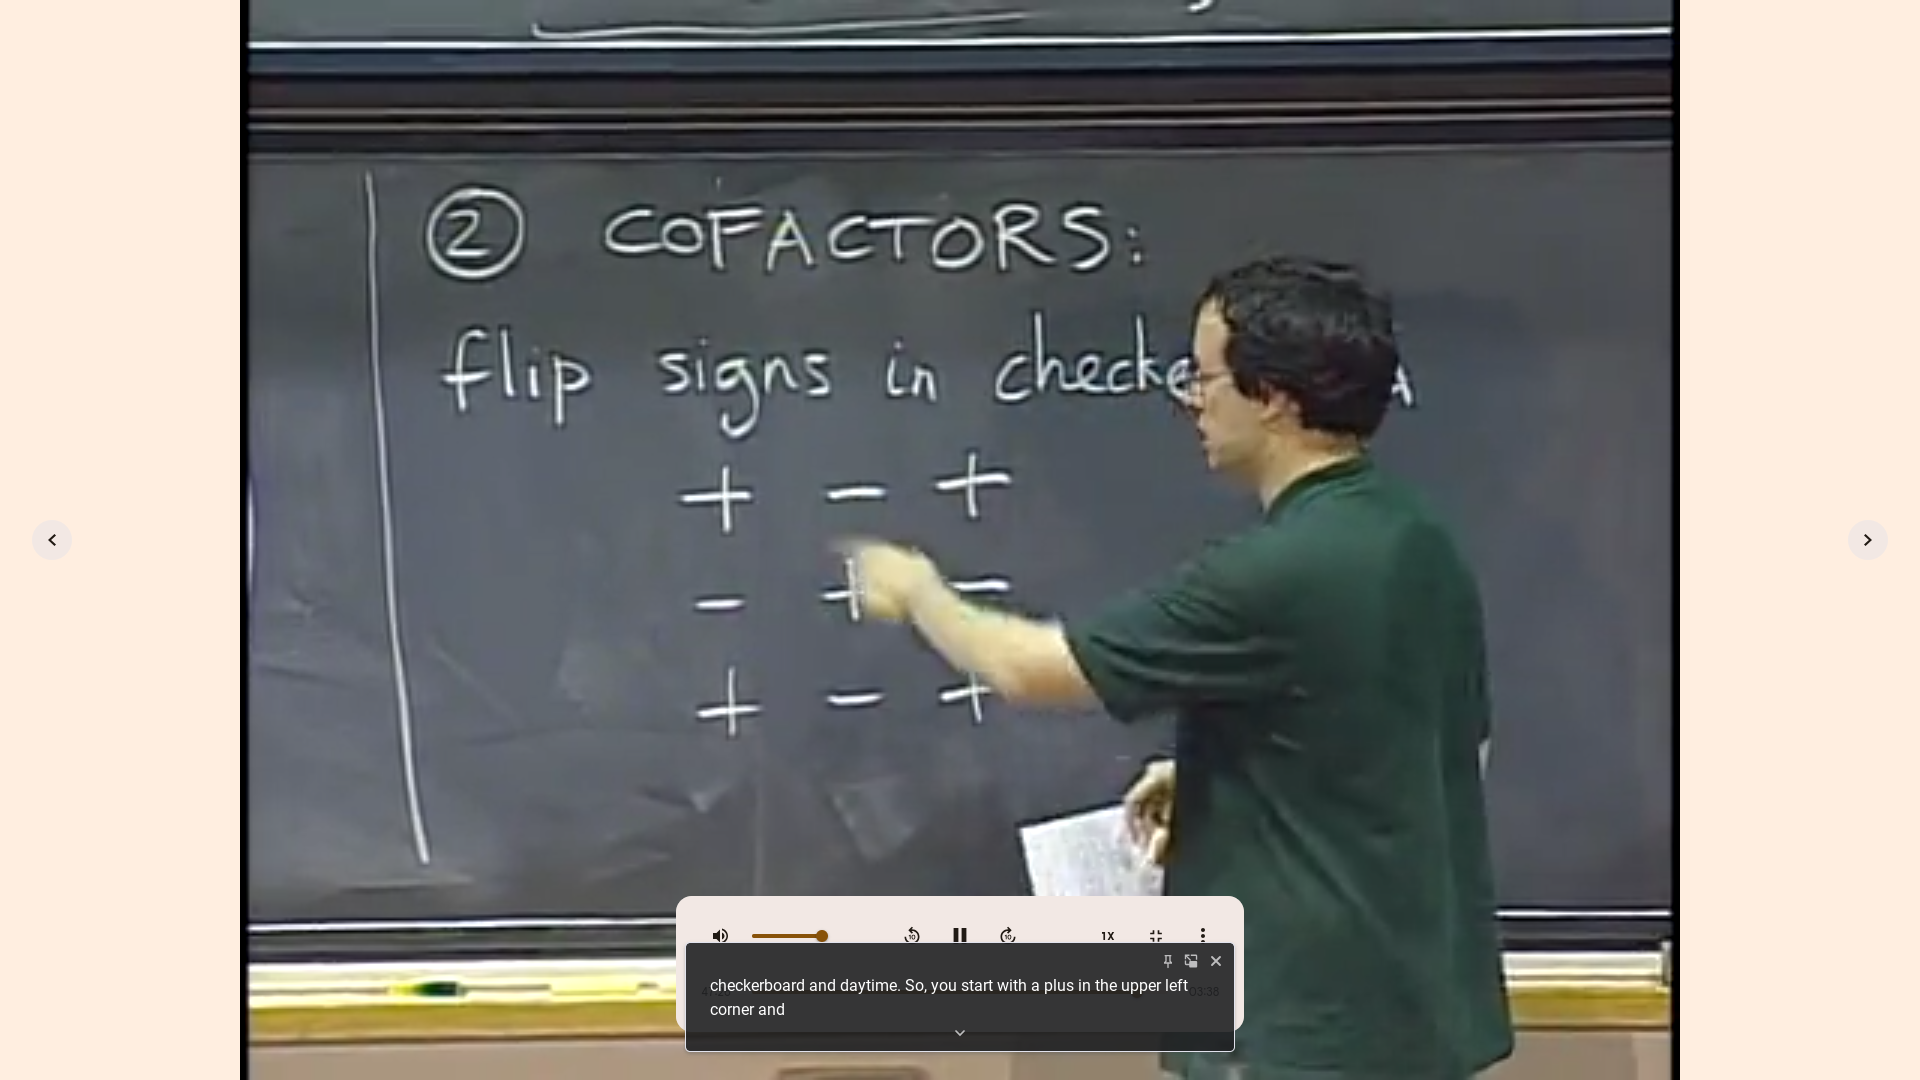 ② COFACTORS:
flip signs in
+ - +
- + -
+ - +
10
10
1X
checkerboard and daytime. So, you start with a plus in the upper left
corner and